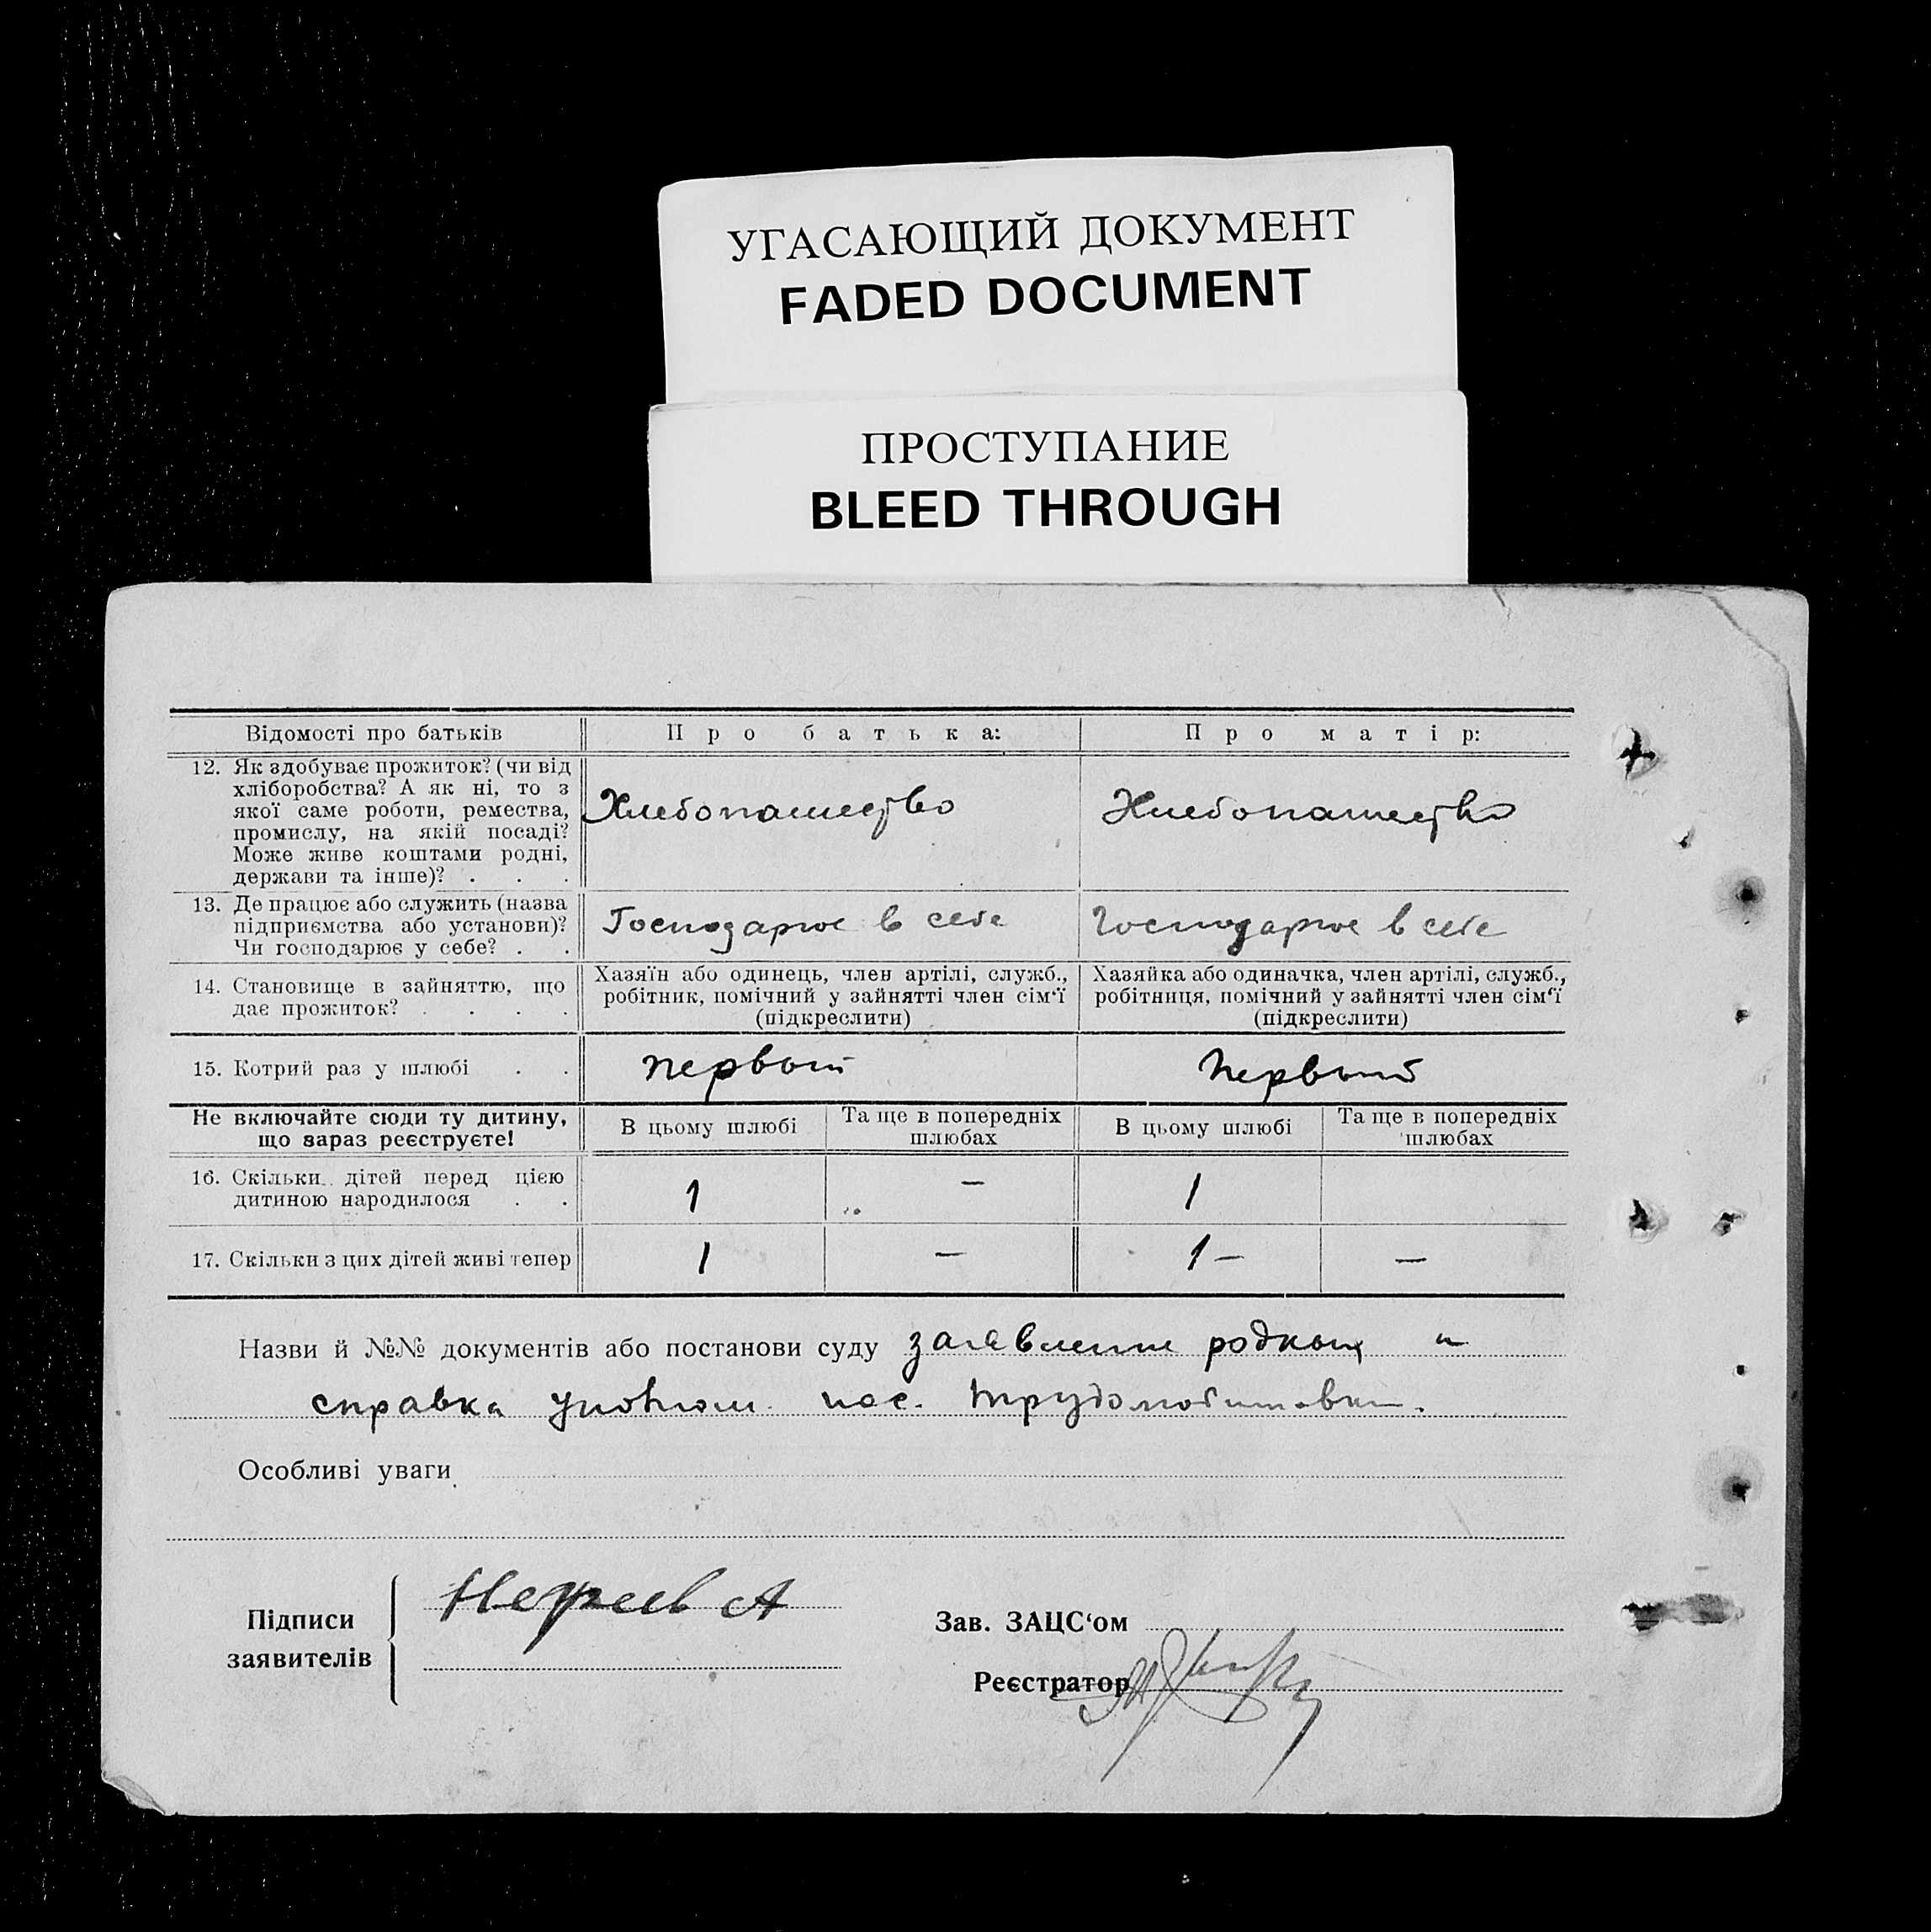 УГАСАЮЩИЙ ДОКУМЕНТ
FADED DOCUMENT
ПРОСТУПАНИЕ
BLEED THROUGH
Відомості про батьків Про батька: Про матір:
12. Як здобуває прожиток? (чи від
хліборобства? А як ні, то з
якої саме роботи, ремества,
промислу, на якій посаді?
Може живе коштами родні,
держави та інше)? . . .
Хлебопашество Хлебопашество
13. Де працює або служить (назва
підприємства або установи)?
Чи господарює у себе? . .
Господарює в себе Господарює в себе
14. Становище в зайняттю, що
дає прожиток? . . . .
Хазяїн або одинець, член артілі, служб.,
робітник, помічний у зайнятті член сім‘ї
(підкреслити)
Хазяйка або одиначка, член артілі, служб.,
робітниця, помічний у зайнятті член сім‘ї
(підкреслити)
15. Котрий раз у шлюбі . . первый Первый
Не включайте сюди ту дитину,
що зараз реєструєте!
В цьому шлюбі
Та ще в попередніх
шлюбах
В цьому шлюбі
Та ще в попередніх
шлюбах
16. Скільки дітей перед цією
дитиною народилося . .
1 — 1
17. Скільки з цих дітей живі тепер 1 — 1 — —
Назви й №№ документів або постанови суду заявление и
справка пос.
Особливі уваги
Підписи
заявителів
Зав. ЗАЦС‘ом
Реєстратор